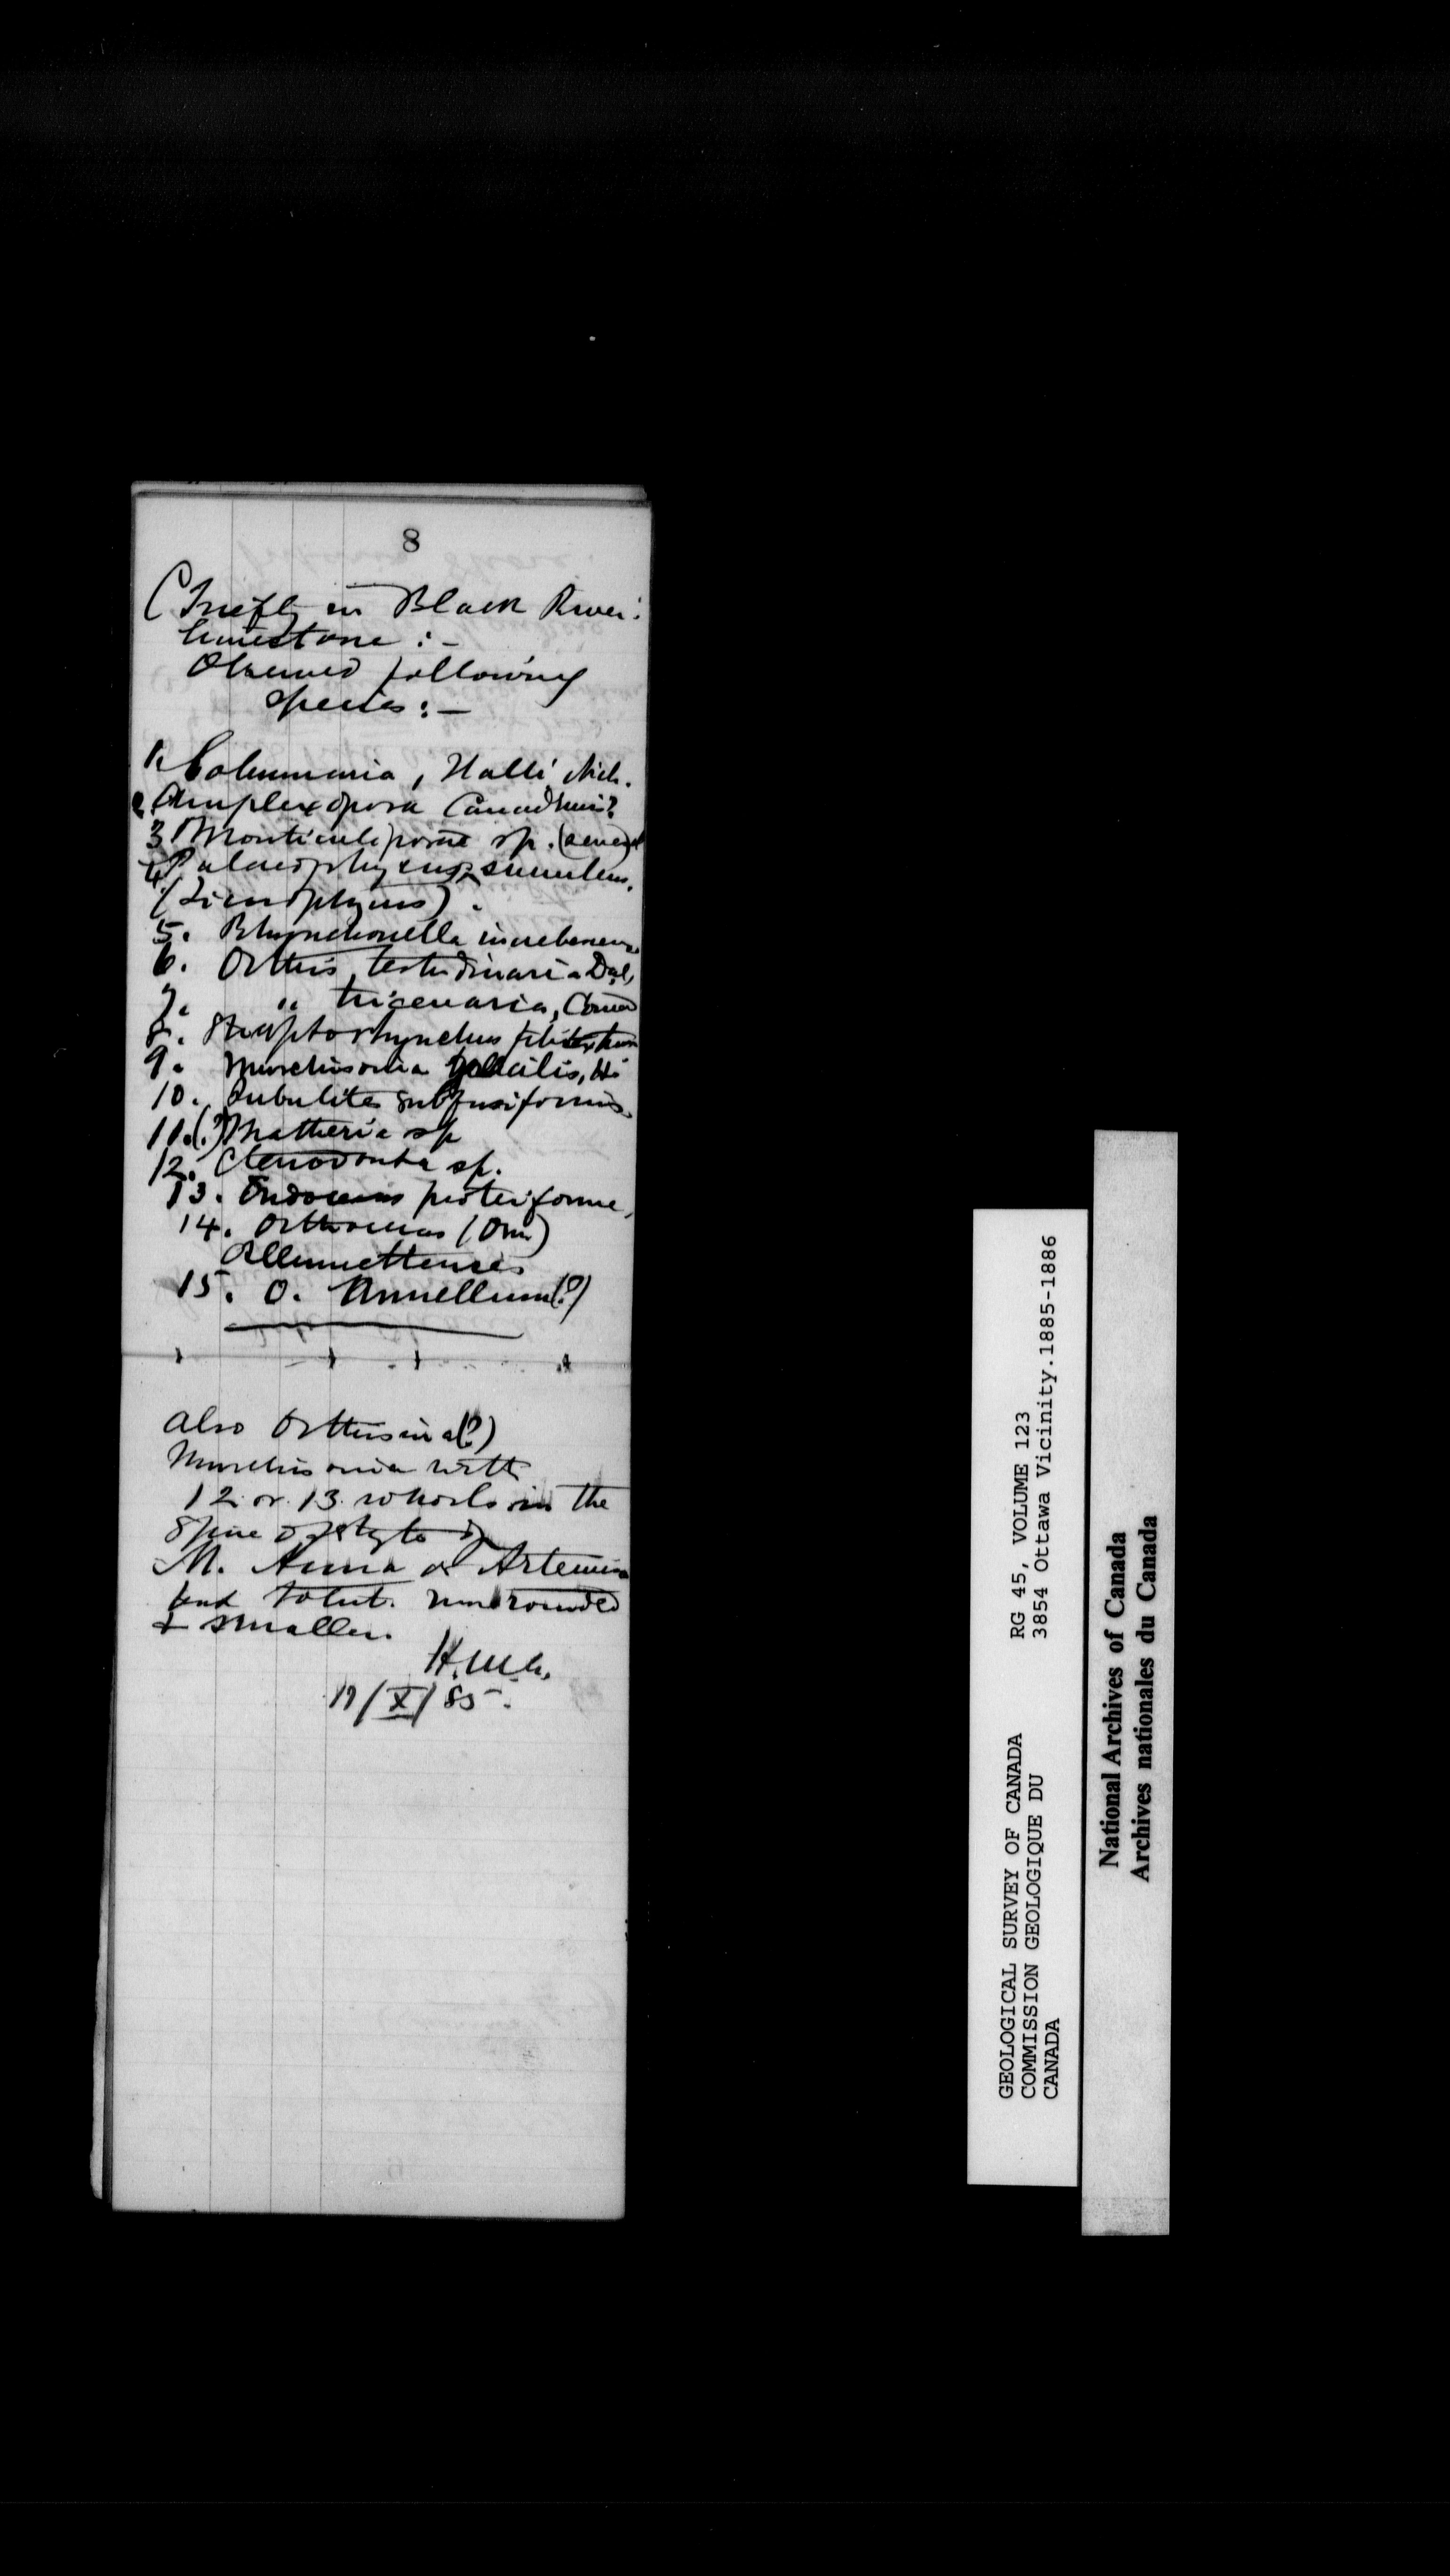 8
Chiefly in Black River
limestone :-
Observed following
species :-
1. Columnaria, Halli Nich.
2. Amplexopora Canadensis?
3 Monticulipora sp. (several
4. Palaeophyllum,
(
5. Rhynchonella increbescens
6. Orthis, testudinaria Dal,
7. " tricenaria, Conrad
8. Streptorhynchus filitextum
9. Murchisonia gracilis, H.
10. Subulites subfusiformis.
11. (?) Matheria sp
12. Ctenodonta sp.
13. Endoceras proteiforme,
14. Orthoceras (Orm)
Allumettense
15. O. Anuellum (?)
also Orthisina (?)
Murchisonia with
12 or 13 whorls in the
spire of style of
M. Anna or Artemesia
but
& smaller.
H.M.A.
19/X/85.
GEOLOGICAL SURVEY OF CANADA
COMMISSION GEOLOGIQUE DU
CANADA
RG 45, VOLUME 123
3854 Ottawa Vicinity.1885-1886
National Archives of Canada
Archives nationales du Canada